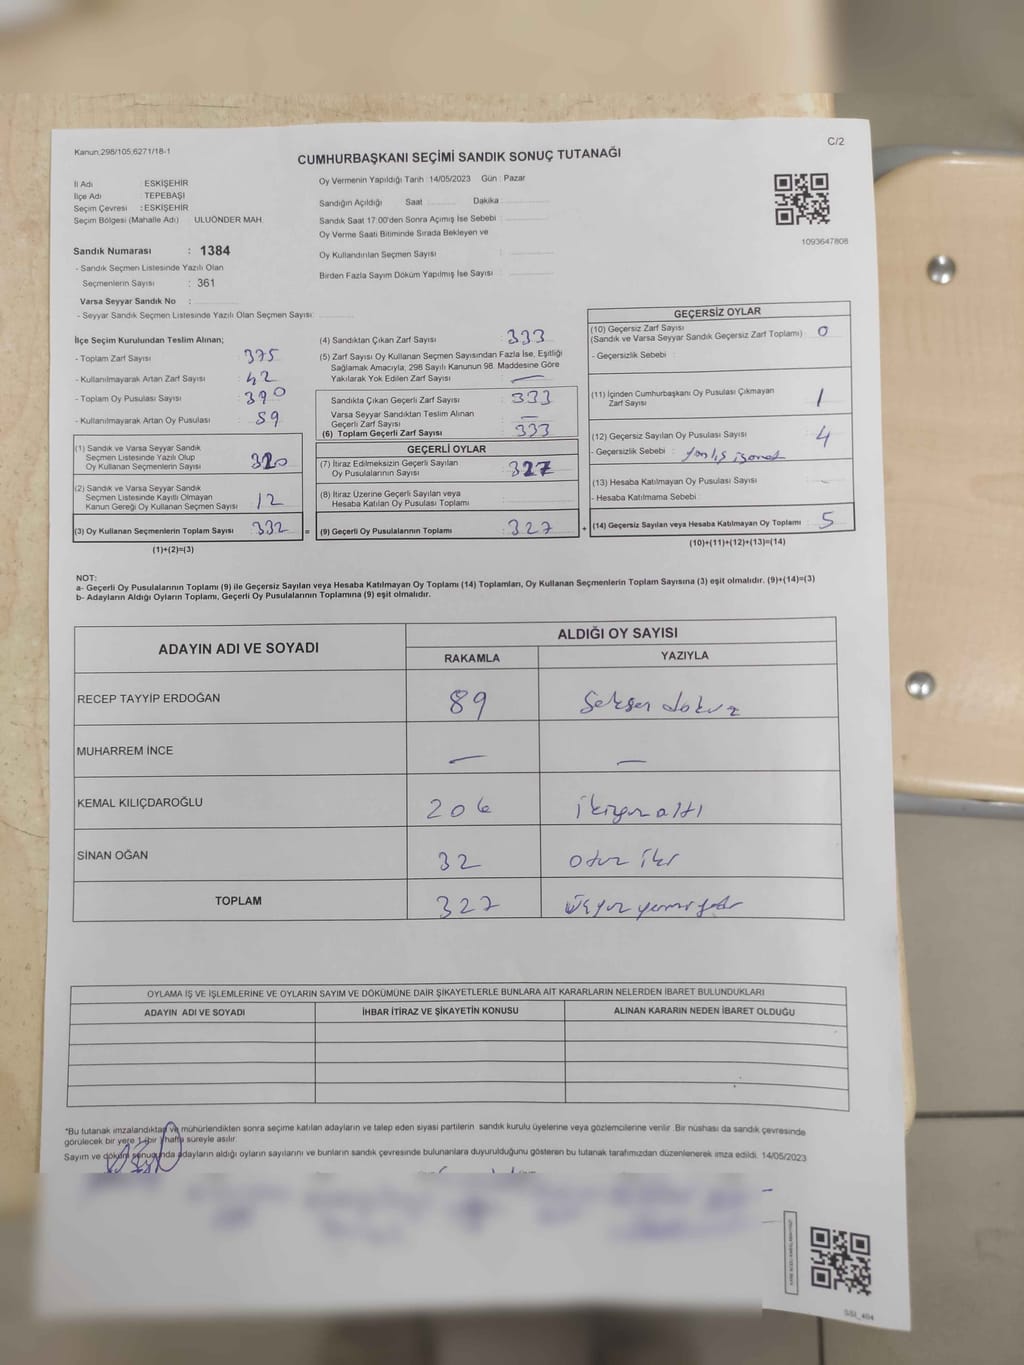 Kanun,298/105,6271/18-1
C/2
CUMHURBAŞKANI SEÇİMİ SANDIK SONUÇ TUTANAĞI
İl Adı : ESKİŞEHİR
İlçe Adı : TEPEBAŞI
Seçim Çevresi : ESKİŞEHİR
Seçim Bölgesi (Mahalle Adı) : ULUÖNDER MAH.
Oy Vermenin Yapıldığı Tarih :14/05/2023 Gün : Pazar
Sandığın Açıldığı Saat Dakika
Sandık Saat 17:00'den Sonra Açımış İse Sebebi :
Oy Verme Saati Bitiminde Sırada Bekleyen ve
Oy Kullandırılan Seçmen Sayısı :
Birden Fazla Sayım Döküm Yapılmış İse Sayısı :
1093647808
Sandık Numarası : 1384
- Sandık Seçmen Listesinde Yazılı Olan
Seçmenlerin Sayısı : 361
Varsa Seyyar Sandık No :
- Seyyar Sandık Seçmen Listesinde Yazılı Olan Seçmen Sayısı:
İlçe Seçim Kurulundan Teslim Alınan;
- Toplam Zarf Sayısı 375
- Kullanılmayarak Artan Zarf Sayısı 42
- Toplam Oy Pusulası Sayısı 390
- Kullanılmayarak Artan Oy Pusulası 59
(1) Sandık ve Varsa Seyyar Sandık
Seçmen Listesinde Yazılı Olup
Oy Kullanan Seçmenlerin Sayısı 320
(2) Sandık ve Varsa Seyyar Sandık
Seçmen Listesinde Kayıtlı Olmayan
Kanun Gereği Oy Kullanan Seçmen Sayısı 12
(3) Oy Kullanan Seçmenlerin Toplam Sayısı 332 =
(1)+(2)=(3)
(4) Sandıktan Çıkan Zarf Sayısı 333
(5) Zarf Sayısı Oy Kullanan Seçmen Sayısından Fazla İse, Eşitliği
Sağlamak Amacıyla; 298 Sayılı Kanunun 98. Maddesine Göre
Yakılarak Yok Edilen Zarf Sayısı —
Sandıkta Çıkan Geçerli Zarf Sayısı 333
Varsa Seyyar Sandıktan Teslim Alınan
Geçerli Zarf Sayısı —
(6) Toplam Geçerli Zarf Sayısı 333
GEÇERLİ OYLAR
(7) İtiraz Edilmeksizin Geçerli Sayılan
Oy Pusulalarının Sayısı 327
(8) İtiraz Üzerine Geçerli Sayılan veya
Hesaba Katılan Oy Pusulası Toplamı
(9) Geçerli Oy Pusulalarının Toplamı : 327 +
GEÇERSİZ OYLAR
(10) Geçersiz Zarf Sayısı
(Sandık ve Varsa Seyyar Sandık Geçersiz Zarf Toplamı) : 0
- Geçersizlik Sebebi :
(11) İçinden Cumhurbaşkanı Oy Pusulası Çıkmayan
Zarf Sayısı 1
(12) Geçersiz Sayılan Oy Pusulası Sayısı 4
- Geçersizlik Sebebi : yanlış işaret
(13) Hesaba Katılmayan Oy Pusulası Sayısı —
- Hesaba Katılmama Sebebi
(14) Geçersiz Sayılan veya Hesaba Katılmayan Oy Toplamı 5
(10)+(11)+(12)+(13)=(14)
NOT:
a- Geçerli Oy Pusulalarının Toplamı (9) ile Geçersiz Sayılan veya Hesaba Katılmayan Oy Toplamı (14) Toplamları, Oy Kullanan Seçmenlerin Toplam Sayısına (3) eşit olmalıdır. (9)+(14)=(3)
b- Adayların Aldığı Oyların Toplamı, Geçerli Oy Pusulalarının Toplamına (9) eşit olmalıdır.
ADAYIN ADI VE SOYADI
ALDIĞI OY SAYISI
RAKAMLA YAZIYLA
RECEP TAYYİP ERDOĞAN 89 Seksen dokuz
MUHARREM İNCE — —
KEMAL KILIÇDAROĞLU 206 ikiyüz altı
SİNAN OĞAN 32 otuz iki
TOPLAM 327 üçyüz yirmi yedi
OYLAMA İŞ VE İŞLEMLERİNE VE OYLARIN SAYIM VE DÖKÜMÜNE DAİR ŞİKAYETLERLE BUNLARA AİT KARARLARIN NELERDEN İBARET BULUNDUKLARI
ADAYIN ADI VE SOYADI İHBAR İTİRAZ VE ŞİKAYETİN KONUSU ALINAN KARARIN NEDEN İBARET OLDUĞU
*Bu tutanak imzalandıktan ve mühürlendikten sonra seçime katılan adayların ve talep eden siyasi partilerin sandık kurulu üyelerine veya gözlemcilerine verilir .Bir nüshası da sandık çevresinde
görülecek bir yere 1 (bir ) hafta süreyle asılır.
Sayım ve döküm sonuçunda adayların aldığı oyların sayılarını ve bunların sandık çevresinde bulunanlara duyurulduğunu gösteren bu tutanak tarafımızdan düzenlenerek imza edildi. 14/05/2023
SSI_404